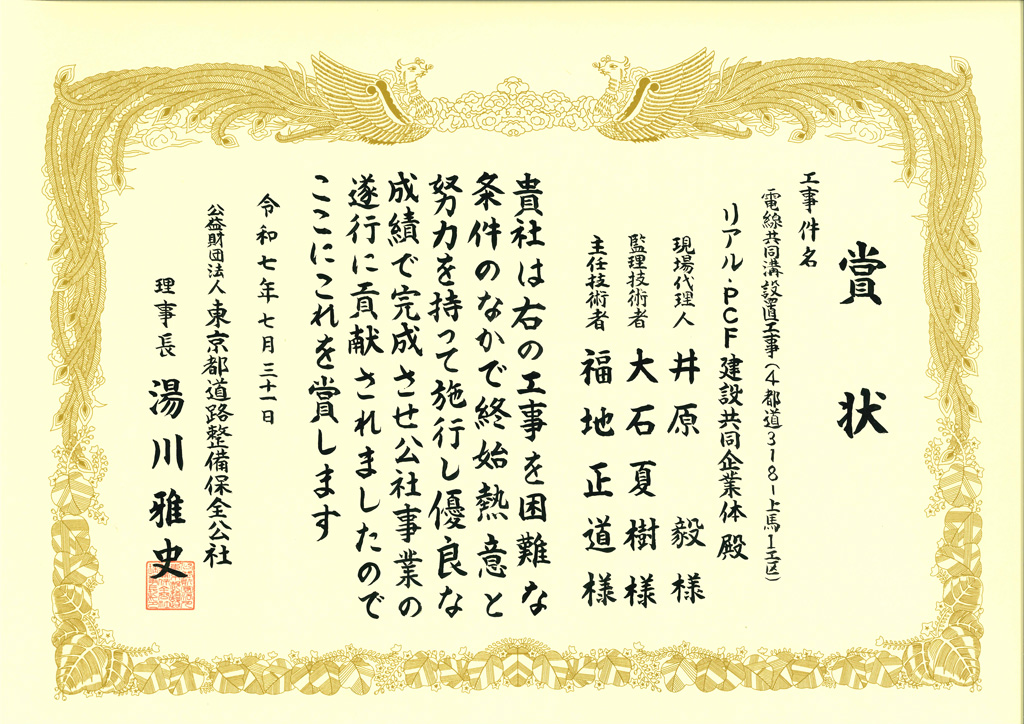 賞状
工事件名
電線共同溝設置工事(4都道318-上馬-1工区)
リアル・PCF建設共同企業体殿
現場代理人 井原 毅 様
監理技術者 大石夏樹様
主任技術者 福地正道様
貴社は右の工事を困難な
条件のなかで終始熱意と
努力を持って施行し優良な
成績で完成させ公社事業の
遂行に貢献されましたので
ここにこれを賞します
令和七年七月三十一日
公益財団法人 東京都道路整備保全公社
理事長 湯川雅史